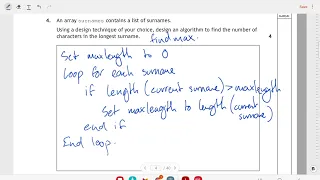 4. An array surnames contains a list of surnames.
Using a design technique of your choice, design an algorithm to find the number of
characters in the longest surname.
4
find max.
Set maxlength to 0
Loop for each surname
if length (current surname) > maxlength
Set maxlength to length (current
surname)
end if
End loop.